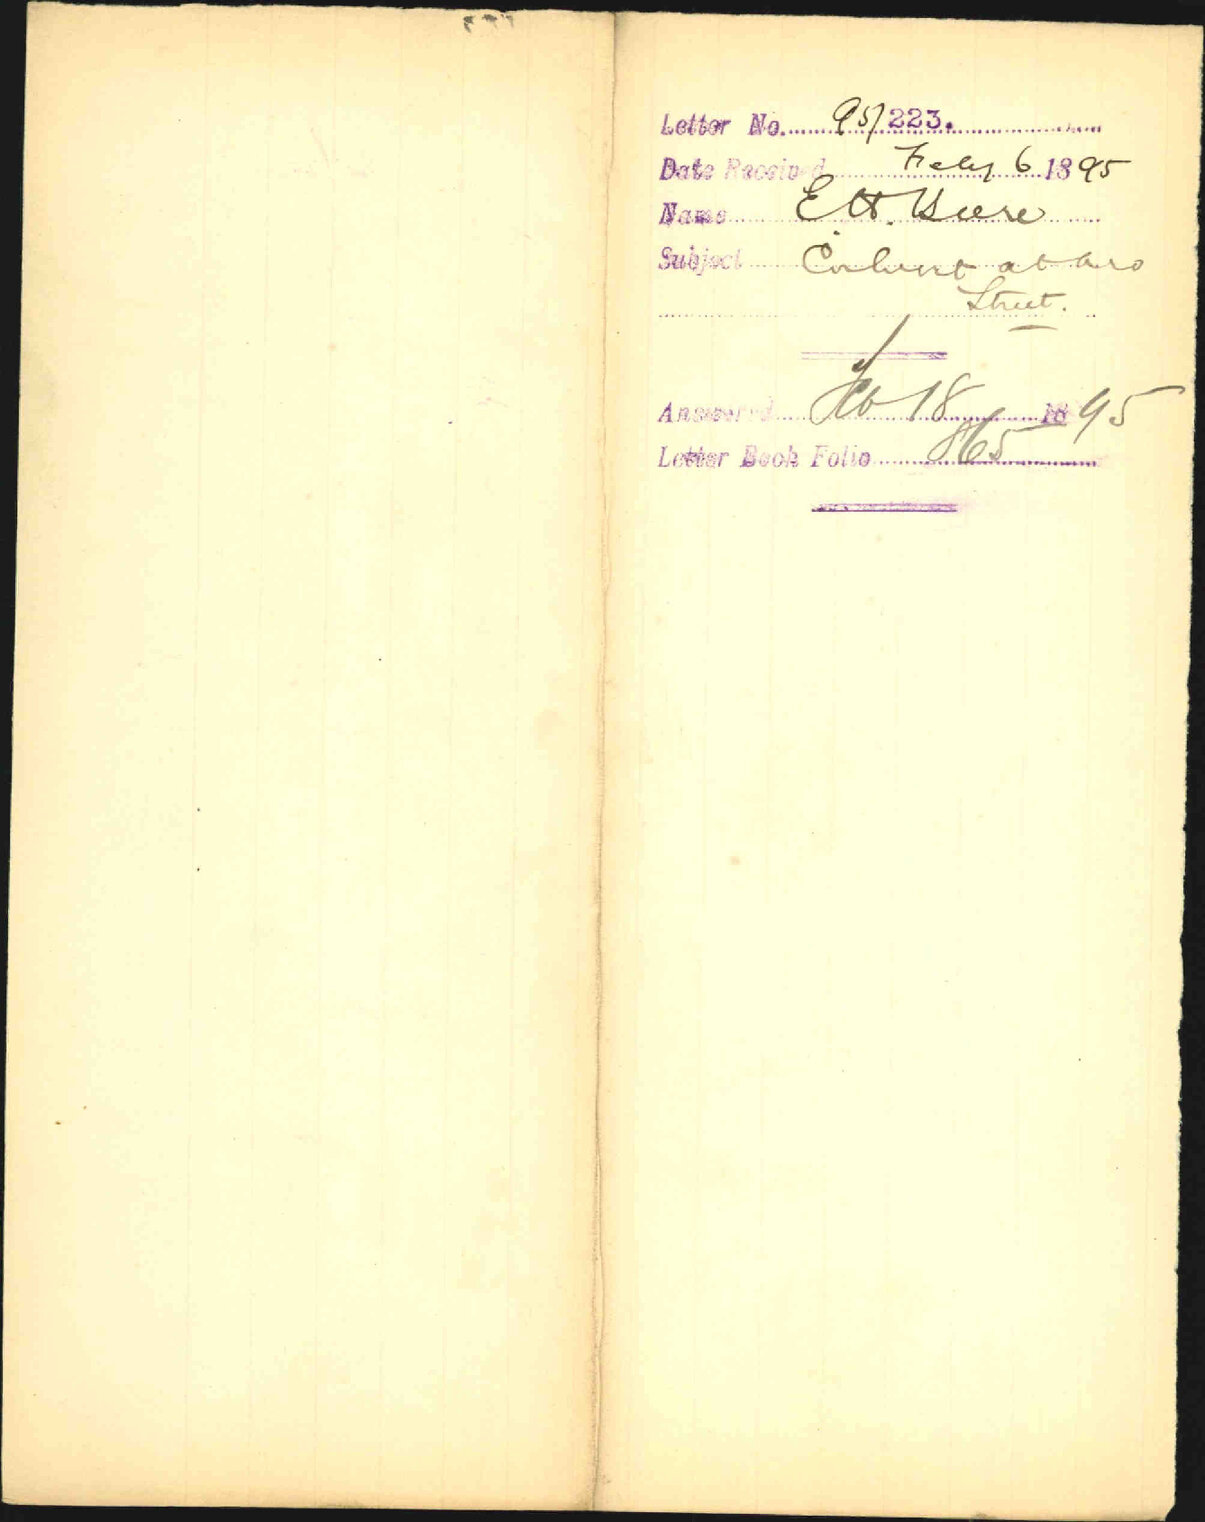 Letter No. 95/223.
Date Received Feby 6 1895
Name E. H. Beere
Subject Culvert at Aro
Street.
Answered Feb 18 1895
Letter Book Folio 865